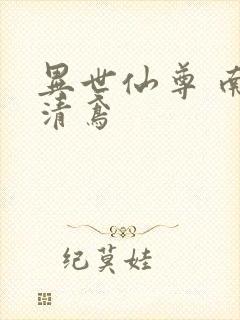 異世仙尊 南
清鳶
纪莫娃